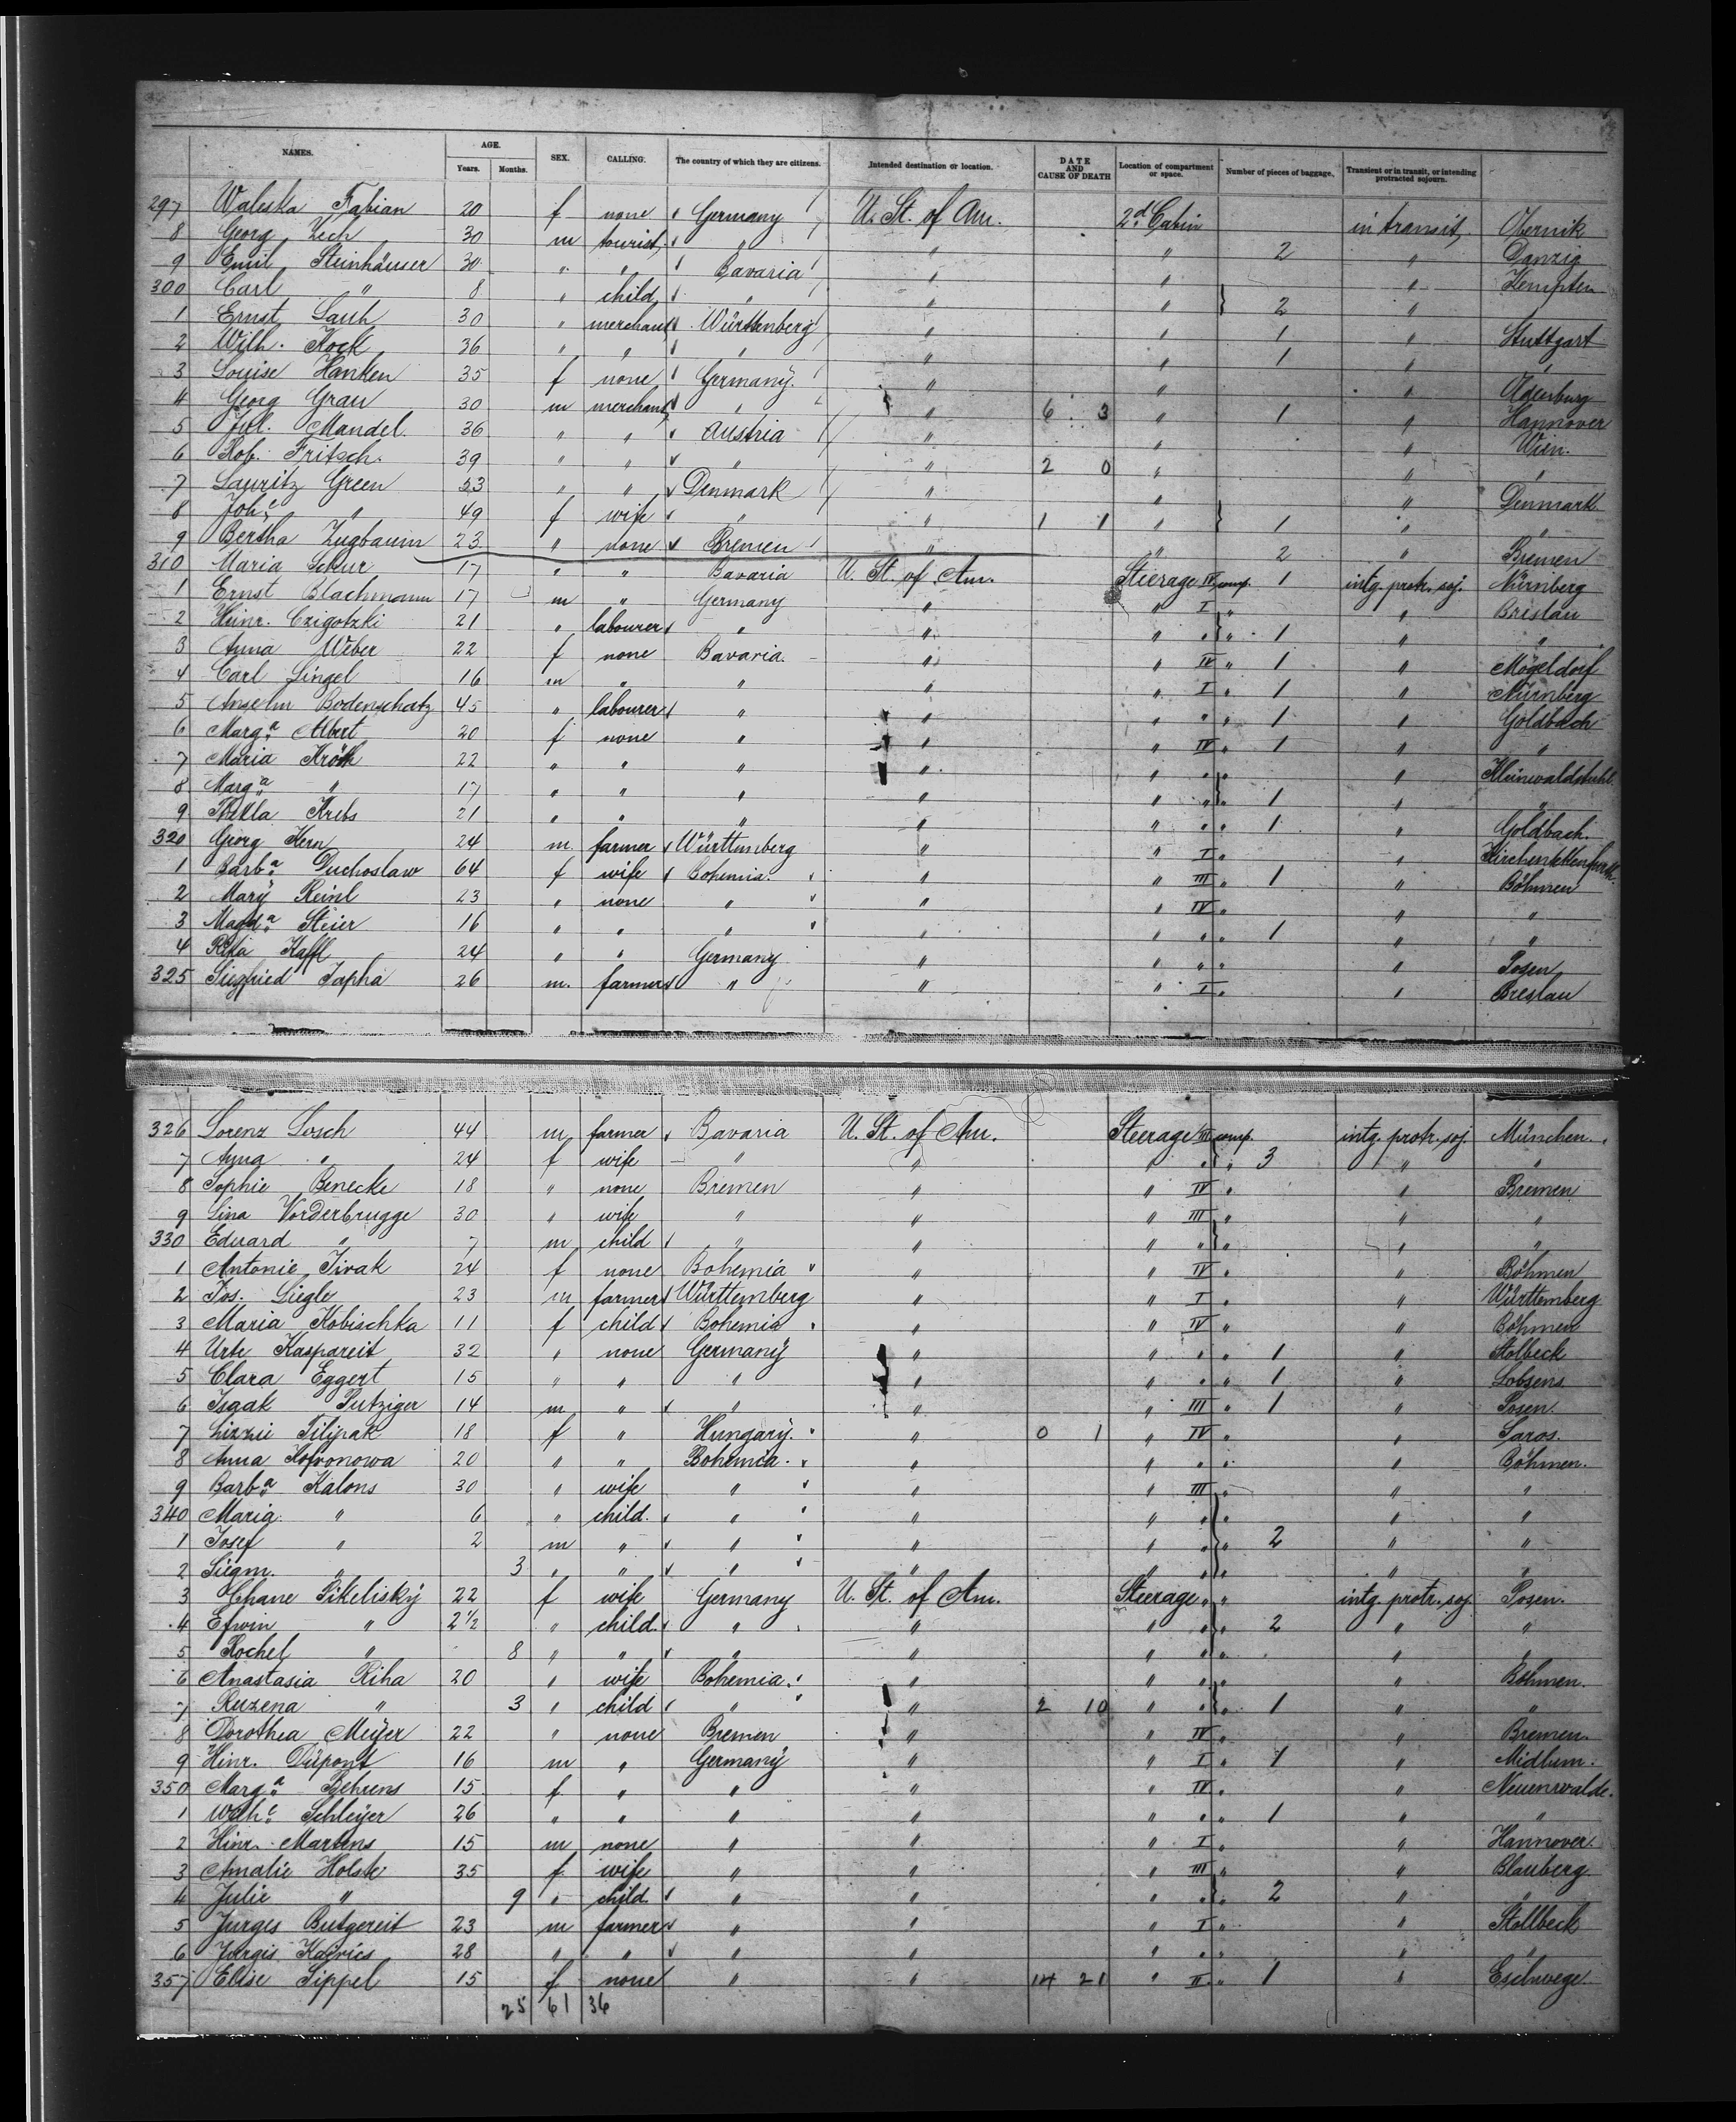 NAMES. AGE. Years. Months. SEX. CALLING. The country of which they are citizens. Intended destination or location. DATE AND CAUSE OF DEATH Location of compartment or space. Number of pieces of baggage. Transient or in transit, or intending protracted sojourn.
297 Waleska Fabian 20 f none Germany U. St. of Am. 2d Cabin in transit, Obernik
8 Georg Zech 30 m tourist, " " " 2 " Danzig
9 Emil Steinhäuser 30 " " Bavaria " " " Kempten
300 Carl " 8 " child " " " 2 "
1 Ernst Lauh 30 " merchant Württenberg " " 1 " Stuttgart
2 Wilh. Kock 36 " " " " " 1 " "
3 Louise Hanken 35 f none Germany " " " Oldenburg
4 Georg Grau 30 m merchant " " 6 3 " 1 " Hannover
5 Jul. Mandel 36 " " Austria " " " Wien.
6 Rob. Fritsch. 39 " " " " 2 0 " " "
7 Lauritz Green 53 " " Denmark " " " Denmark
8 Johe " 49 f wife " " 1 1 " 1 " "
9 Bertha Zugbaum 23 " none Bremen " " 2 " Bremen
310 Maria Schur 17 " " Bavaria U. St. of Am. Steerage IV comp. 1 intg. protr. soj. Nürnberg
1 Ernst Blachmann 17 m " Germany " " I " " Breslau
2 Heinr. Czigotzki 21 " labourer " " " " " 1 " "
3 Anna Weber 22 f none Bavaria. " " IV " 1 " Mögeldorf
4 Carl Lingel 16 m " " " " I " 1 " Nürnberg
5 Anselm Bodenschatz 45 " labourer " " " " " 1 " Goldbach
6 Marga Albert 20 f none " " " IV " 1 " "
7 Maria Kröth 22 " " " " " " " "
8 Marga " 17 " " " " " " " 1 " "
9 Thekla Krebs 21 " " " " " " " 1 " Goldbach.
320 Georg Kern 24 m farmer Württemberg " " I " "
1 Barba Duchoslaw 64 f wife Bohemia. " " III " 1 " Böhmen
2 Mary Reinl 23 " none " " " IV " " "
3 Magda Steier 16 " " " " " " " 1 " "
4 Rika Kaffl 24 " " Germany " " " " " Posen
325 Siegfried Japha 26 m. farmer " " " I " " Breslau
326 Lorenz Losch 44 m farmer Bavaria U. St. of Am. Steerage III comp. intg. protr. soj. München.
7 Anna " 24 f wife " " " " " 3 " "
8 Sophie Benecke 18 " none Bremen " " IV " " Bremen
9 Lina Vorderbrugge 30 " wife " " " III " " "
330 Eduard " 7 m child " " " " " " "
1 Antonie Jirak 24 f none Bohemia " " IV " " Böhmen
2 Jos. Liegle 23 m farmer Württemberg " " I " " Württemberg
3 Maria Kobischka 11 f child Bohemia " " IV " " Böhmen
4 Urte Kaspareit 32 " none Germany " " " " 1 " Stolbeck
5 Clara Eggert 15 " " " " " " " 1 " Lobsens
6 Isaak Putziger 14 m " " " " III " 1 " Posen.
7 Lizzie Filipak 18 f " Hungary. " 0 1 " IV " " Saros.
8 Anna Kofronowa 20 " " Bohemia. " " " " " Böhmen.
9 Barba Kalons 30 " wife " " " III " " "
340 Maria " 6 " child. " " " " " " "
1 Josef " 2 m " " " " " " 2 " "
2 Siegm. " 3 " " " " " " " " "
3 Chane Pikelisky 22 f wife Germany U. St. of Am. Steerage " " intg. protr. soj. Posen.
4 Efwin " 2½ " child. " " " " " 2 " "
5 Rochel " 8 " " " " " " " " "
6 Anastasia Riha 20 " wife Bohemia. " " " " " Böhmen.
7 Ruzena " 3 " child " " 2 10 " " " 1 " "
8 Dorothea Meyer 22 " none Bremen " " IV " " Bremen.
9 Hinr. Düpont 16 m " Germany " " I " 1 " Midlum.
350 Marga Behrens 15 f " " " " IV " " Neuenwalde.
1 Wilhe Schleyer 26 " " " " " " " 1 " "
2 Hinr. Martens 15 m none " " " I " " Hannover.
3 Amalie Holste 35 f wife " " " III " " Blauberg
4 Julie " 9 " child. " " " " " 2 " "
5 Jurges Butgereit 23 m farmer " " " I " " Stollbeck
6 Jurgis 28 " " " " " " " " "
357 Elise Sippel 15 f none " " 14 21 " II " 1 " Eschwege
25 61 36